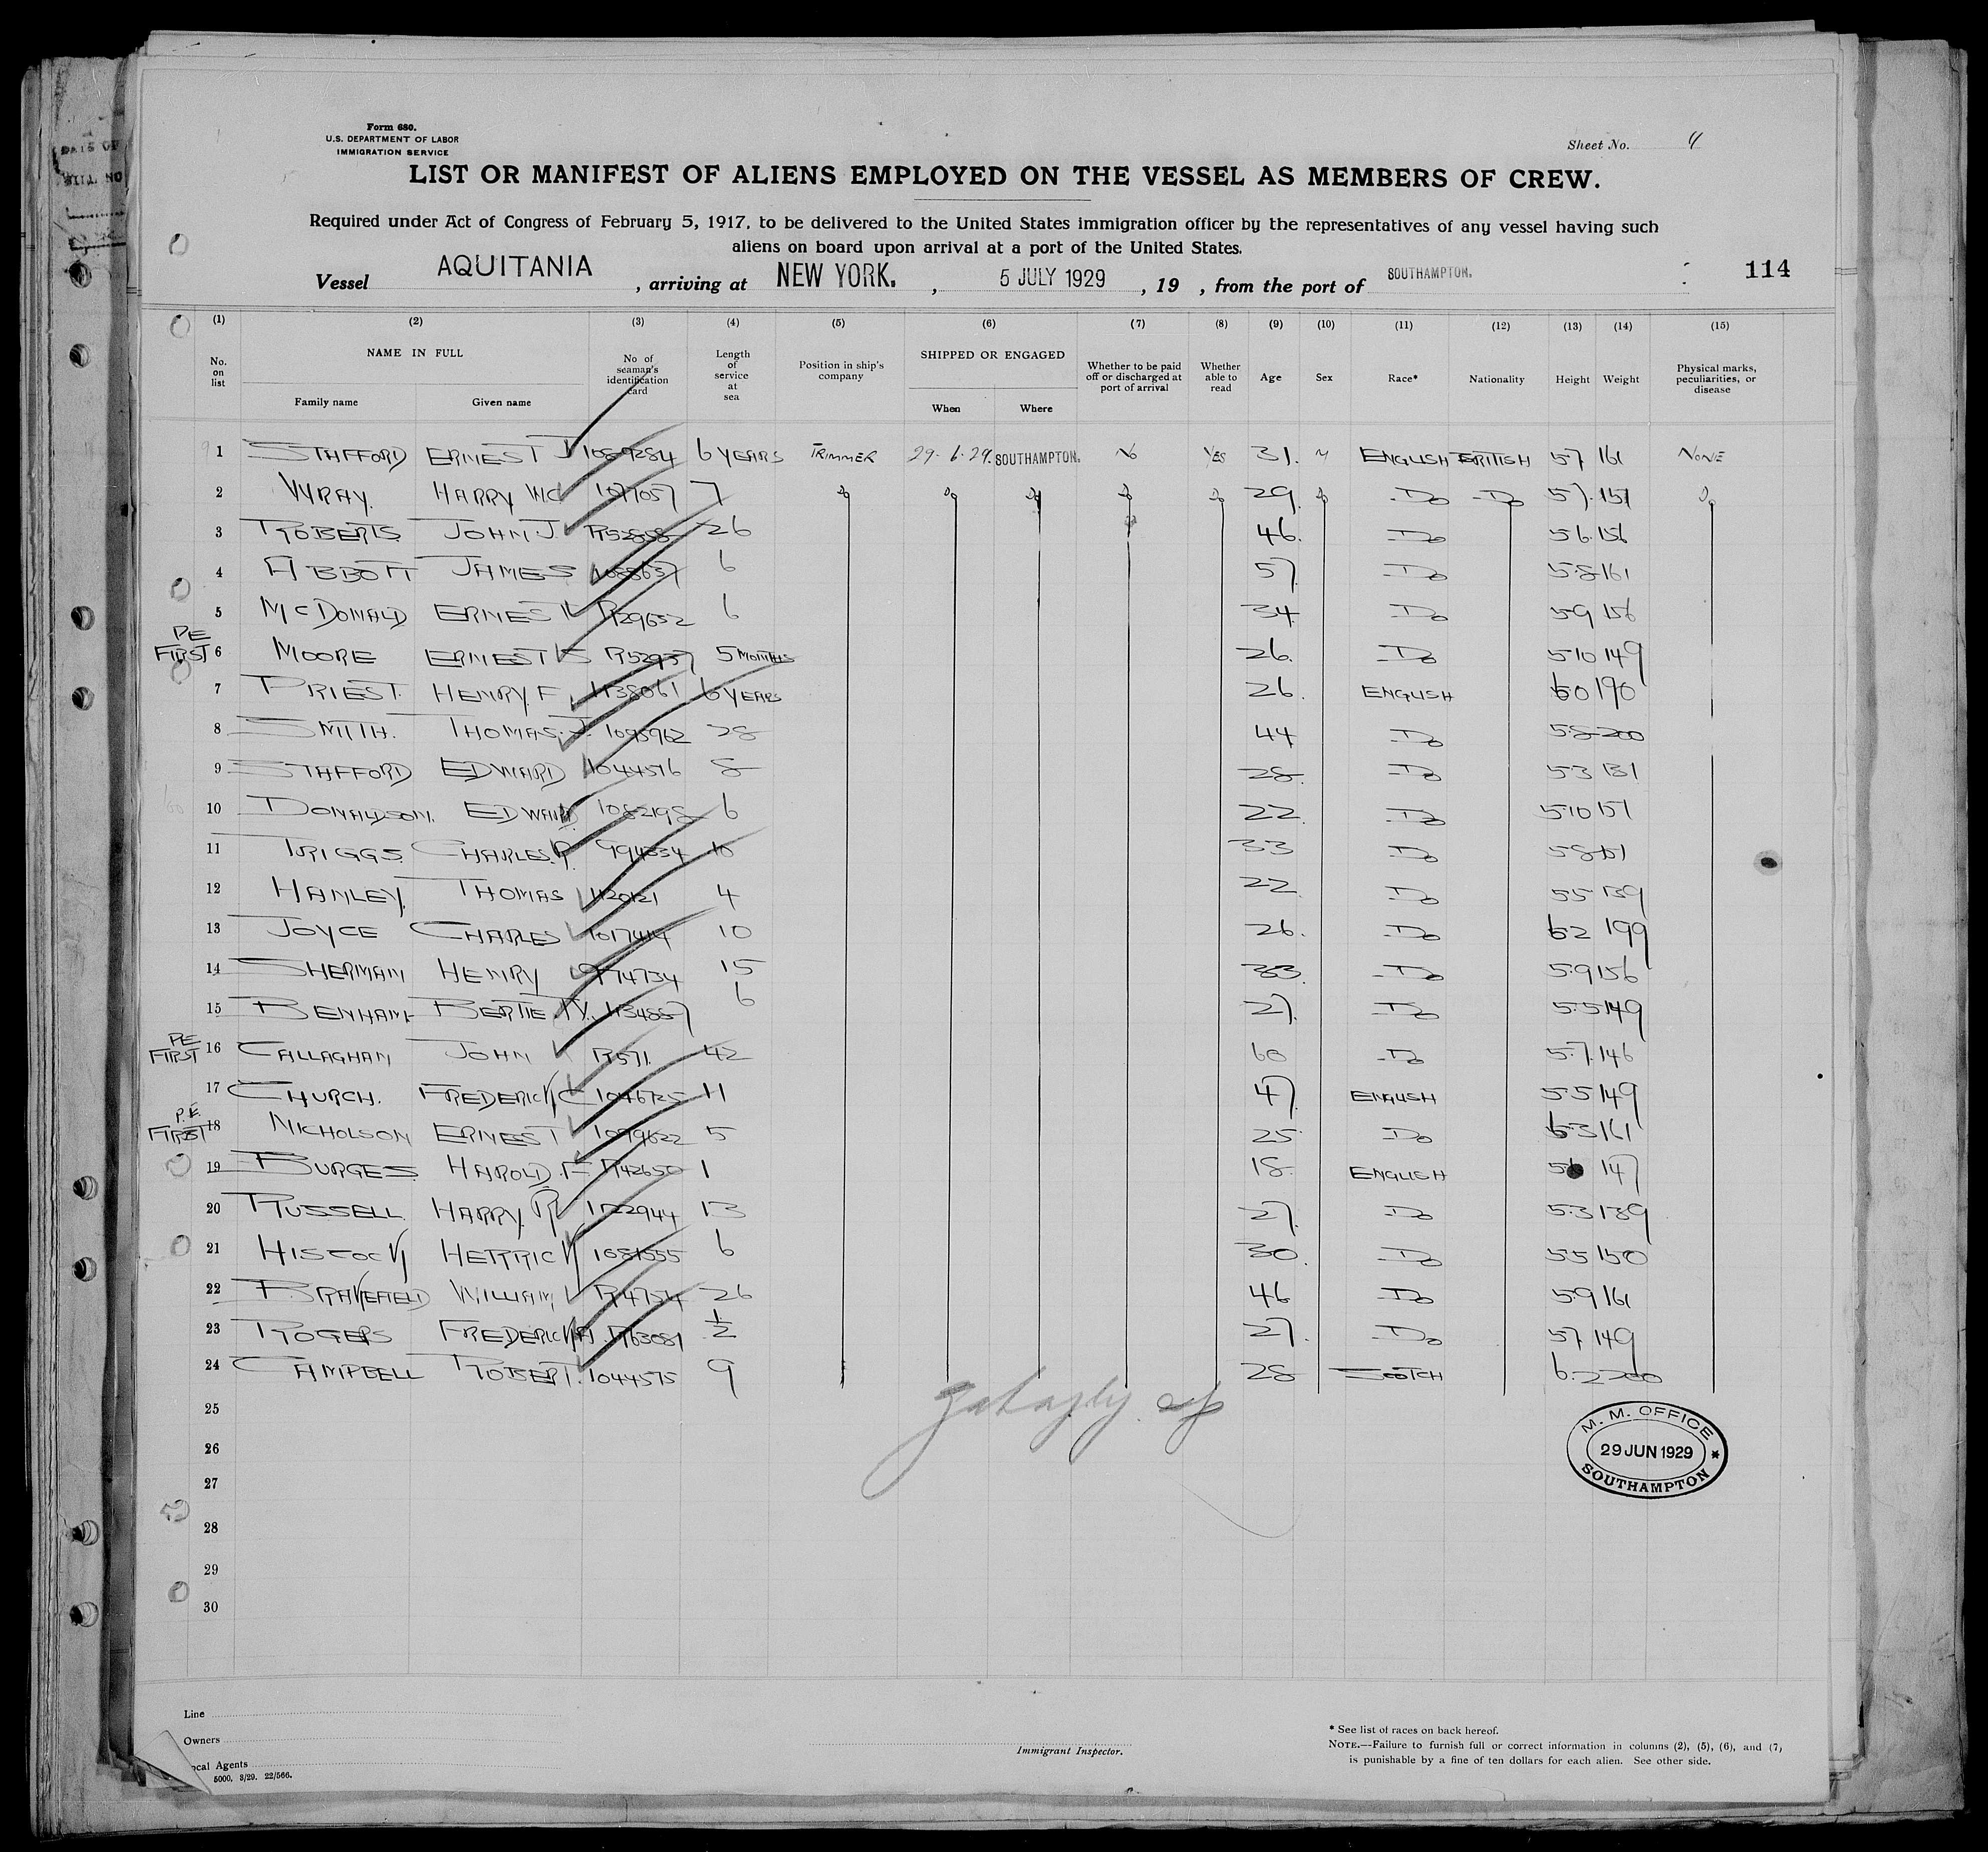 Form 680.
U.S. DEPARTMENT OF LABOR
IMMIGRATION SERVICE
Sheet No.
LIST OR MANIFEST OF ALIENS EMPLOYED ON THE VESSEL AS MEMBERS OF CREW.
Required under Act of Congress of February 5, 1917, to be delivered to the United States immigration officer by the representatives of any vessel having such
aliens on board upon arrival at a port of the United States.
Vessel AQUITANIA, arriving at NEW YORK., 5 JULY 1929, 19 , from the port of SOUTHAMPTON. 114
(1) (2) (3) (4) (5) (6) (7) (8) (9) (10) (11) (12) (13) (14) (15)
No. on list NAME IN FULL Family name Given name No of seaman's identification card Length of service at sea Position in ship's company SHIPPED OR ENGAGED When Where Whether to be paid off or discharged at port of arrival Whether able to read Age Sex Race* Nationality Height Weight Physical marks, peculiarities, or disease
1 STAFFORD ERNEST J 1089284 6 YEARS TRIMMER 29.6.29. SOUTHAMPTON. No YES 31. M ENGLISH BRITISH 5 7 161 NONE
2 WRAY. HARRY WC 1077057 7 Do Do Do Do Do 29. Do Do Do 5 7. 151 Do
3 ROBERTS JOHN J. 26 46. Do 5 6. 156
4 ABBOTT JAMES 6 57. Do 5 8 161
5 McDONALD ERNEST R29652 6 34 Do 5 9 156
PE
FIRST 6 MOORE ERNEST S R52937 5 MONTHS 26. Do 5 10 149
7 PRIEST. HENRY. F. 1138061 6 YEARS 26. ENGLISH 6 0 190
8 SMITH. THOMAS. J. 1095962 28 44 Do 5 8 200
9 STAFFORD EDWARD 1044576 8 28. Do 5 3 131
10 DONALDSON. EDWARD 1082198 6 22. Do 5 10 151
11 TRIGGS CHARLES. R 994334 10 33 Do 5 8 151
12 HANLEY. THOMAS 1120121 4 22 Do 5 5 139
13 JOYCE CHARLES 1017414 10 26. Do 6 2 199
14 SHERMAN HENRY 974734 15 33. Do 5 9 156
15 BENHAM BERTIE. W. 1134887 6 27. Do 5 5 149
PE
FIRST 16 CALLAGHAN JOHN R571. 42 60 Do 5.7. 146
17 CHURCH. FREDERICK C 1046725 11 47. ENGLISH 5 5 149
P.E.
FIRST 18 NICHOLSON ERNEST 1099622 5 25 Do 5 3 161
19 BURGES HAROLD. F R42650 1 18. ENGLISH 147
20 RUSSELL HARRY. R 1122944 13 27. Do 5 3 139
21 HISCOCK HERRICK 1081555 6 30. Do 5 5 150
22 BRAKEFIELD WILLIAM R4754 26 46 Do 5 9 161
23 ROGERS FREDERICK A. R63081 1/2 27. Do 5 7 149
24 CAMPBELL ROBERT. 1044575 9 28 SCOTCH 6.2 200
25
26
27
28
29
30
M. M. OFFICE
29 JUN 1929
SOUTHAMPTON
Line
Owners
ocal Agents
5000. 3/29. 22/566.
Immigrant Inspector.
* See list of races on back hereof.
NOTE.—Failure to furnish full or correct information in columns (2), (5), (6), and (7,
is punishable by a fine of ten dollars for each alien. See other side.